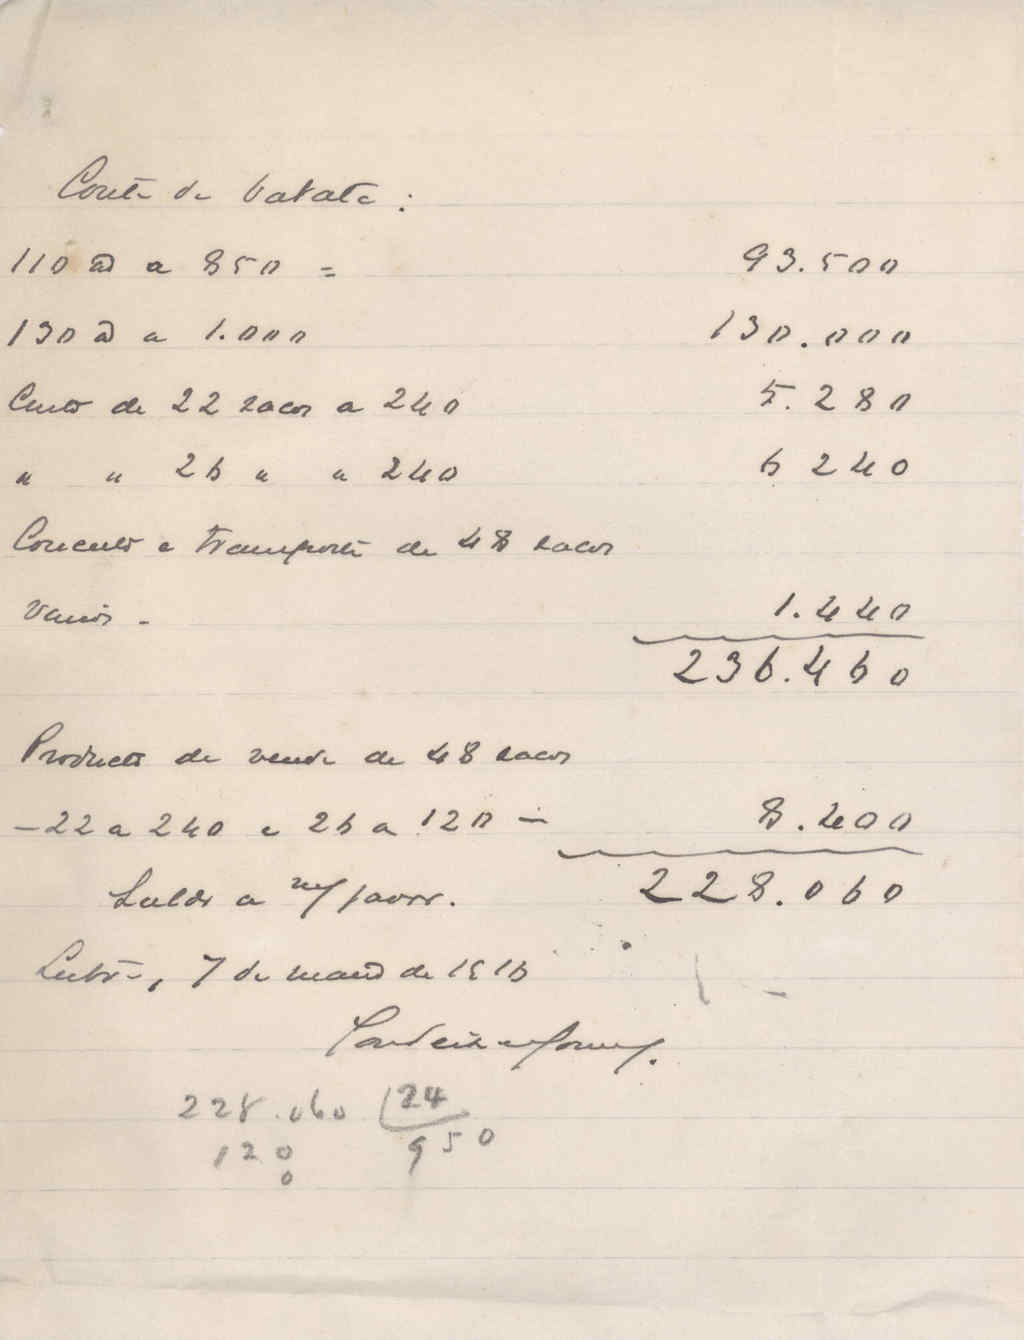 Conta da batata:
110 @ a 850 = 93.500
130 @ a 1.000 130.000
Custo de 22 sacos a 240 5.280
" " 26 " a 240 6 240
Concerto e transporte de 48 sacos
vasios - 1.440
236.460
Producto da venda de 48 sacos
- 22 a 240 e 26 a 120 - 8.400
228.060
Saldo a m/ favor.
, 7 de março de 1916
228.060 24
120 950
0